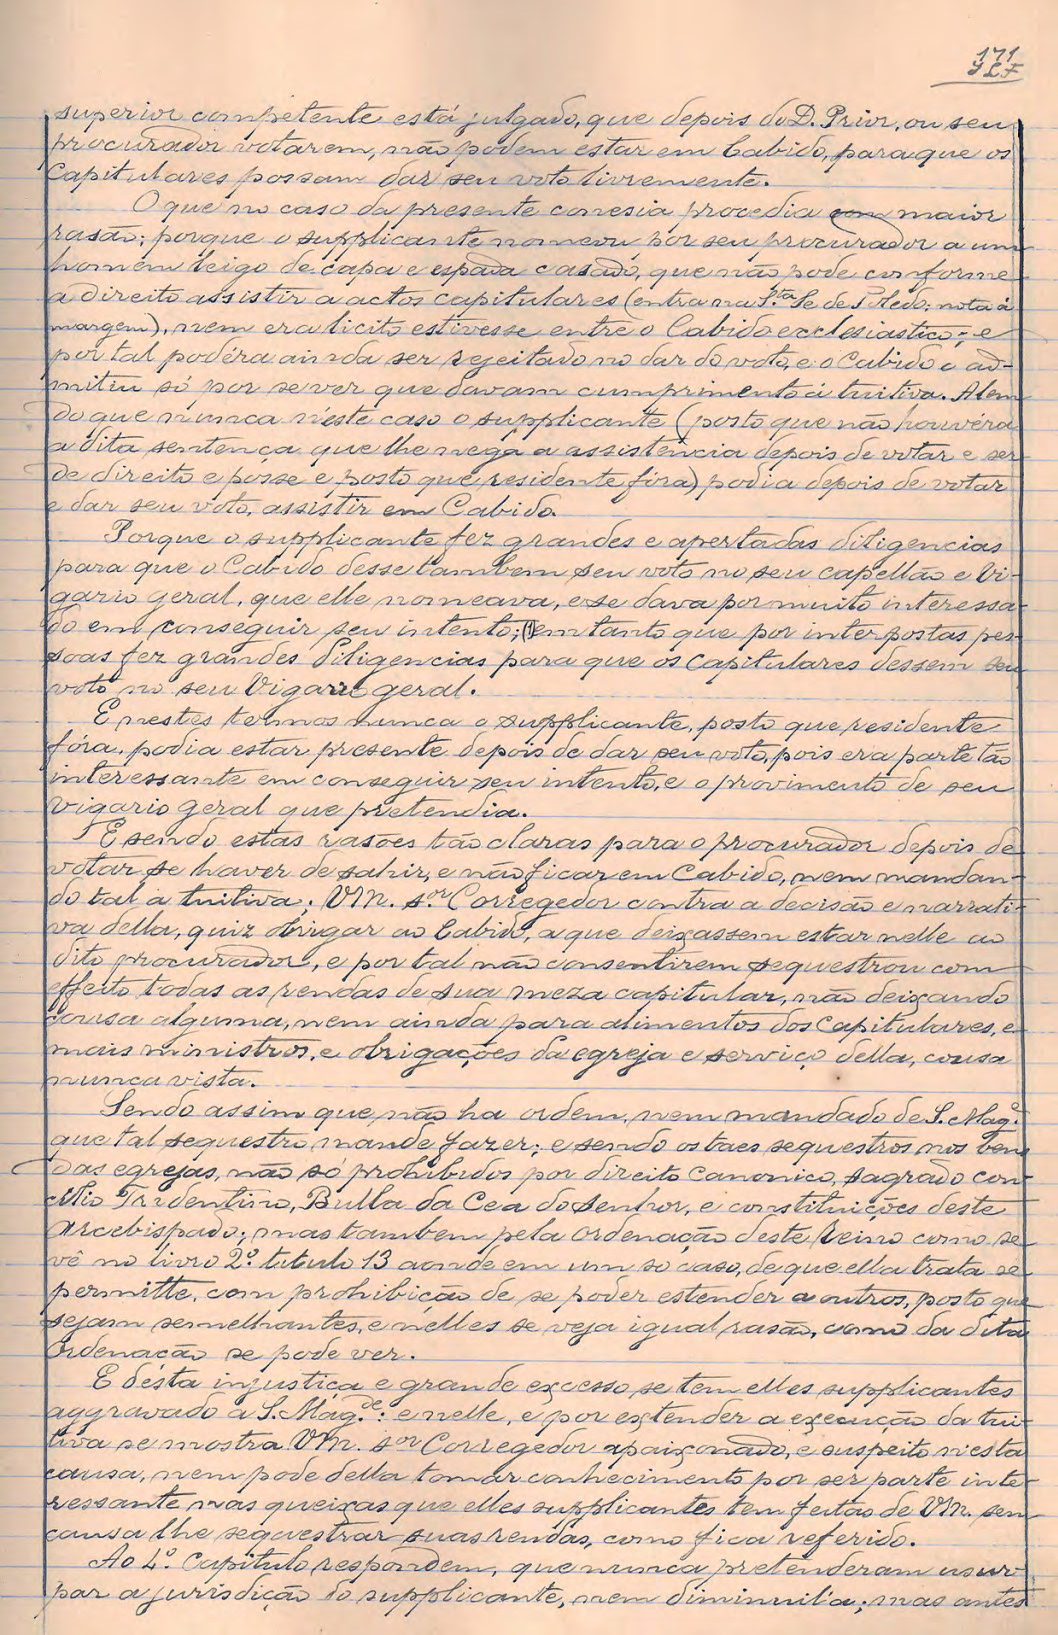 171
superior competente está julgado, que depois do D. Prior, ou seu
procurador votarem, não podem estar em Cabido, para que os
Capitulares possam dar seu voto livremente.
O que no caso da presente conesia procedia com maior
rasão; porque o supplicante nomeou por seu procurador a um
homem leigo de capa e espada casado, que não pode conforme
a direito assistir a actos capitulares (entra na S.ta Sé de Toledo; nota á
margem), nem era licito estivesse entre o Cabido ecclesiastico; e
por tal podéra ainda ser rejeitado no dar do voto, e o Cabido o ad-
mitiu só por se ver que davam cumprimento á tuitiva. Alem
do que nunca n'este caso o supplicante (posto que não houvéra
a dita sentença que lhe nega a assistencia depois de votar e ser
de direito e posse e posto que residente fóra) podia depois de votar
e dar seu voto, assistir em Cabido.
Porque o supplicante fez grandes e apertadas diligencias
para que o Cabido desse tambem seu voto no seu capellão e Vi-
gario geral, que elle nomeava, e se dava por muito interessa-
do em conseguir seu intento; (!) em tanto que por interpostas pes-
soas fez grandes diligencias para que os capitulares dessem seu
voto no seu Vigario geral.
E nestes termos nunca o supplicante, posto que residente
fóra, podia estar presente depois de dar seu voto, pois era parte tão
interessante em conseguir seu intento, e o provimento de seu
vigario geral que pretendia.
E sendo estas rasões tão claras para o procurador depois de
votar se haver de sahir, e não ficar em Cabido, nem mandan-
do tal a tuitiva; VM. s.or Corregedor contra a decisão e narrati-
va della, quiz obrigar ao Cabido, a que deixassem estar nelle ao
dito procurador, e por tal não consentirem sequestrou com
effeito todas as rendas de sua meza capitular, não deixando
cousa alguma, nem ainda para alimentos dos capitulares, e
mais ministros, e obrigações da egreja e serviço della, cousa
nunca vista.
Sendo assim que não ha ordem, nem mandado de S. Mag.e
que tal sequestro mande fazer; e sendo os taes sequestros nos bens
das egrejas, não só prohibidos por direito canonico, sagrado con-
cilio Tridentino, Bulla da Cea do Senhor, e constituições deste
Arcebispado; mas tambem pela ordenação deste Reino como se
vê no livro 2.º titulo 13 aonde em um só caso, de que ella trata se
permitte, com prohibição de se poder estender a outros, posto que
sejam semelhantes, e nelles se veja igual rasão, como da dita
Ordenação se pode ver.
E désta injustiça e grande excesso se tem elles supplicantes
aggravado a S. Mag.de: e nelle, e por extender a execução da tui-
tiva se mostra VM. s.or Corregedor apaixonado, e suspeito n'esta
causa, nem pode della tomar conhecimento por ser parte inte-
ressante nas queixas que elles supplicantes tem feitas de VM. sem
causa lhe sequestrar suas rendas, como fica referido.
Ao 4.º Capitulo respondem, que nunca pretenderam usur-
par a jurisdição do supplicante, nem diminuil'a; mas antes